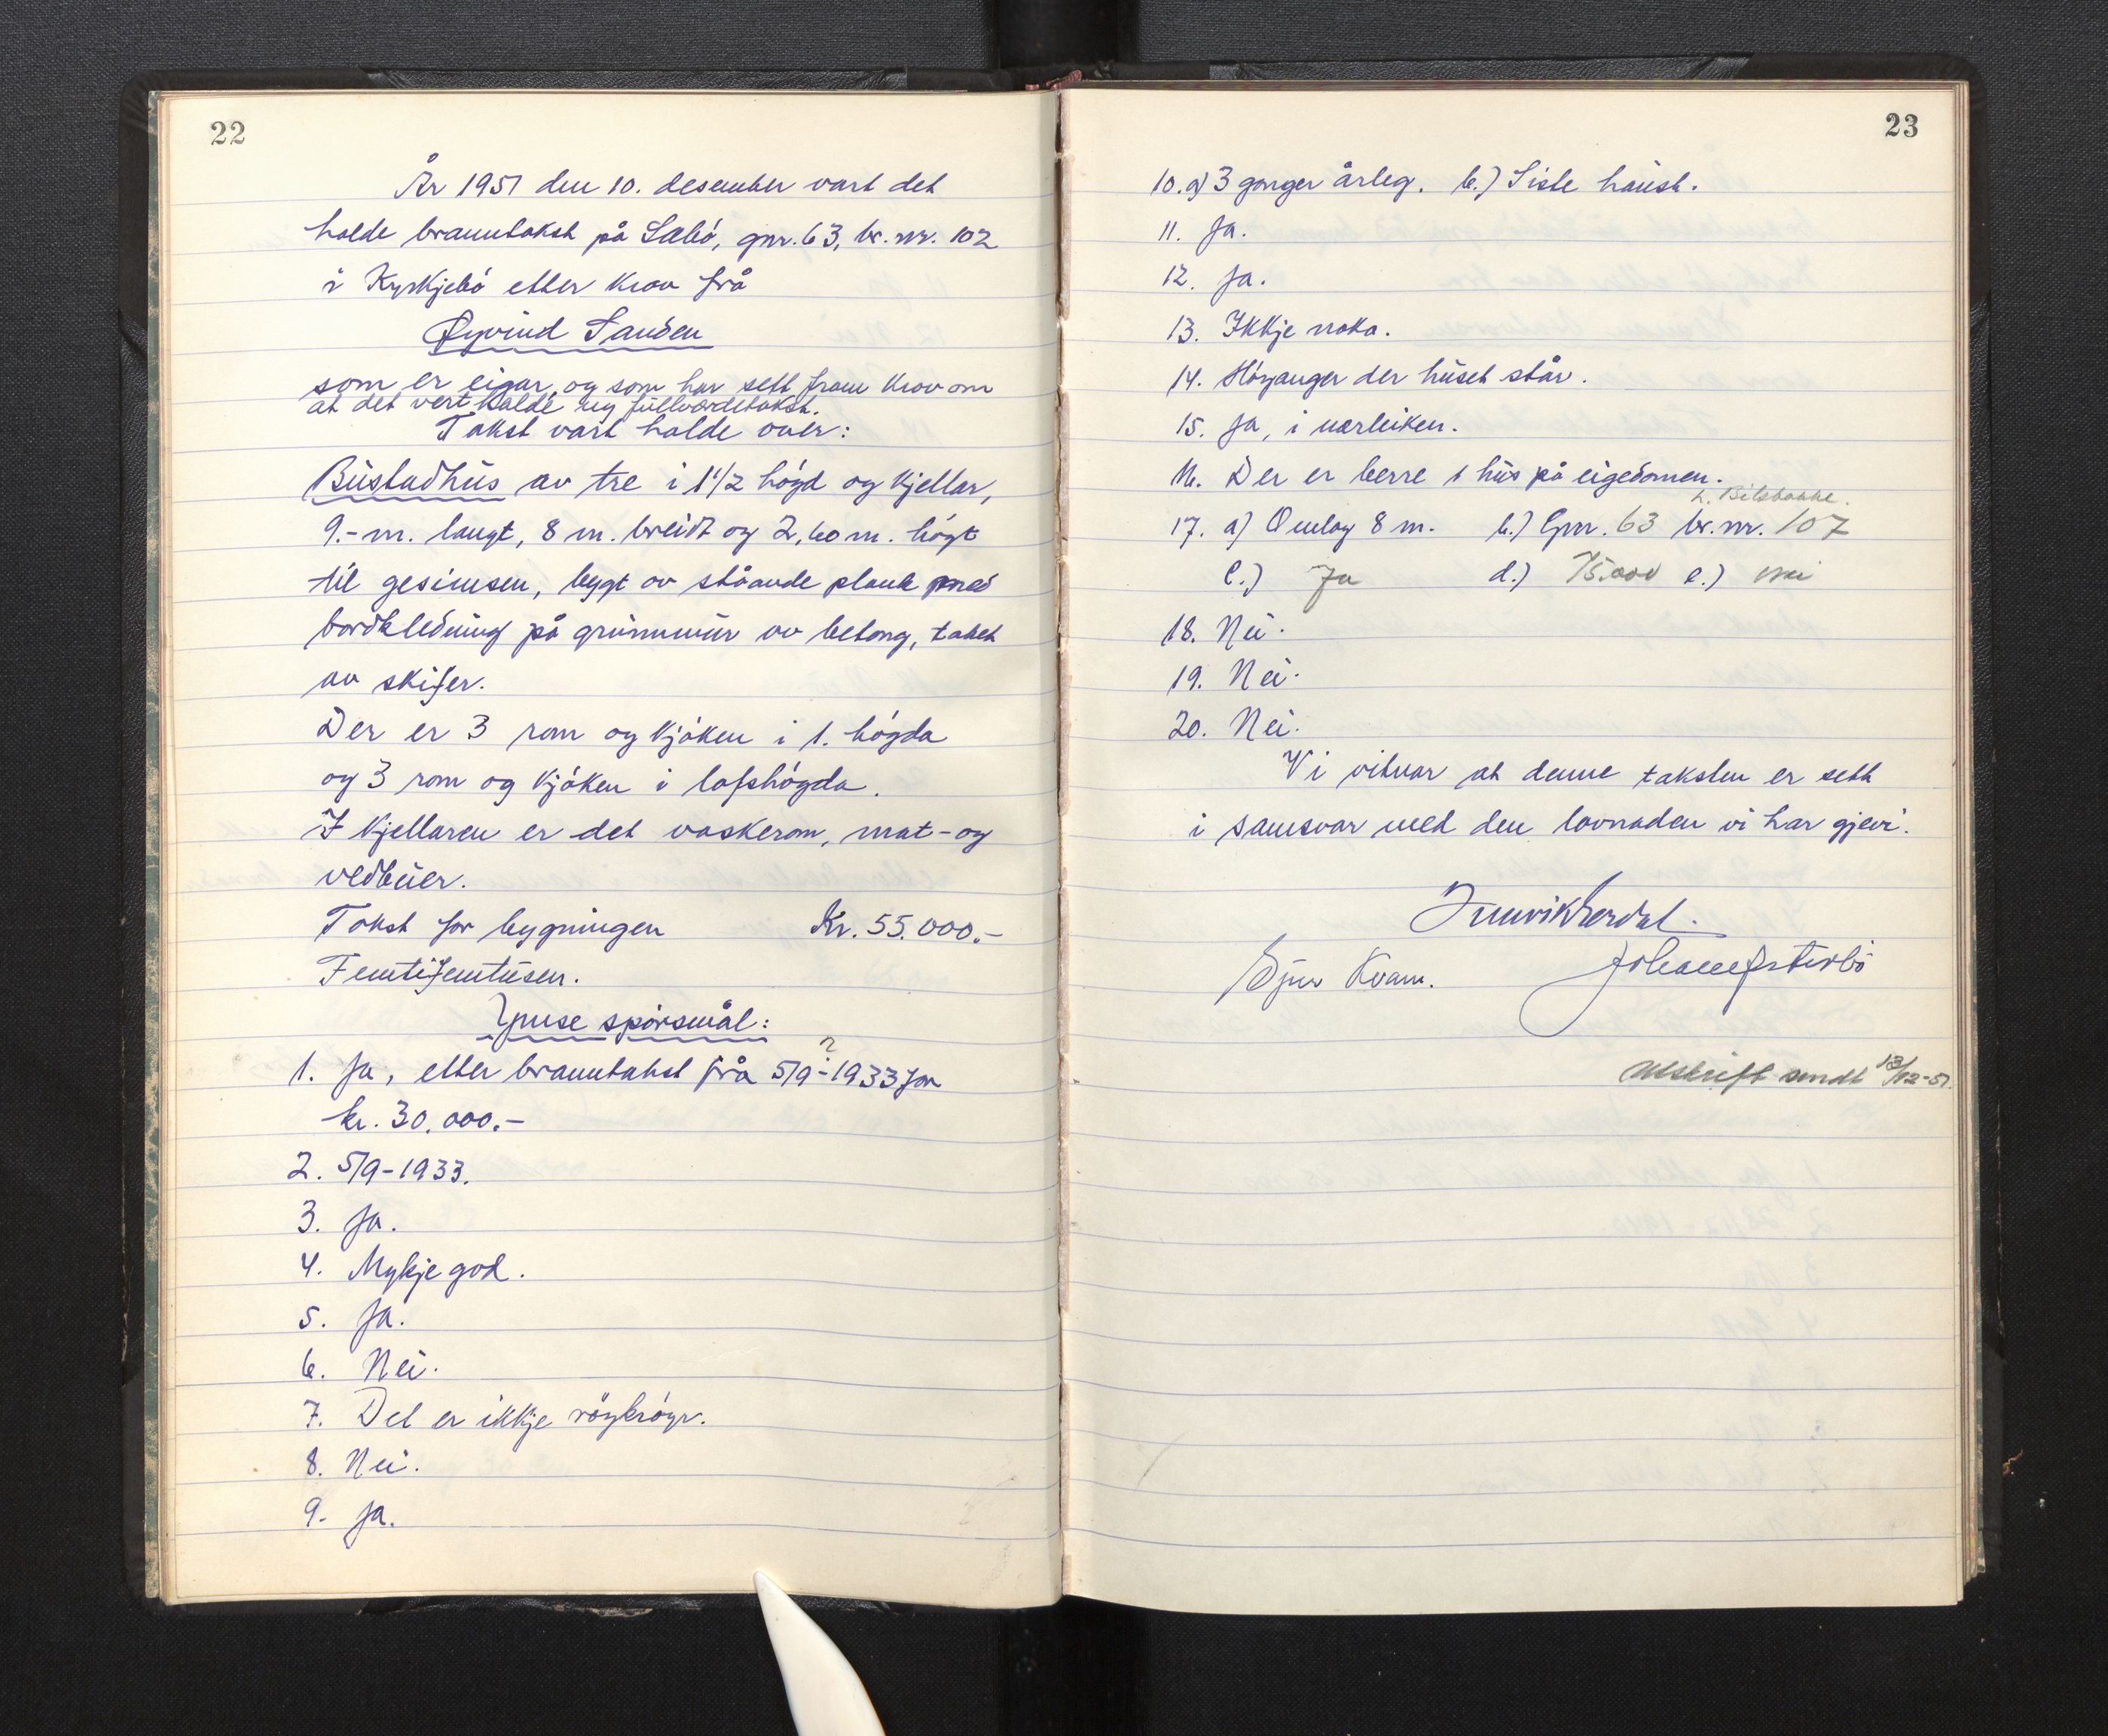 22
År 1951 den 10. desember vart det
halde branntakst på Sæbö, gnr. 63, br. nr. 102
i Kyrkjebö etter krav frå
Øyvind Sanden
som er eigar, og som har sett fram krav om
at det vert halde ny fullverdetakst.
Takst vart halde over:
Bustadhus av tre i 1 1/2 högd og kjellar,
9.- m. langt, 8 m. breidt og 2,60 m. högt
til gesimsen, bygt av ståande plank med
bordkledning på grunnmur av betong, taket
av skifer.
Der er 3 rom og kjöken i 1. högda
og 3 rom og kjöken i lofshögda.
I kjellaren er det vaskerom, mat- og
vedbuer.
Takst for bygningen Kr. 55.000.-
Femtifemtusen.
Ymse spörsmål:
1. Ja, etter branntakst frå 5/9-1933 for
kr. 30.000.-
2. 5/9-1933.
3. Ja.
4. Mykje god.
5. Ja.
6. Nei.
7. Det er ikkje röykröyr.
8. Nei.
9. Ja.
23
10. a) 3 gonger årleg. b.) Siste haust.
11. Ja.
12. Ja.
13. Ikkje noko.
14. Höyanger der huset står.
15. Ja, i nærleiken.
16. Der er berre 1 hus på eigedomen.
17. a) Omlag 8 m. b.) Gnr. 63 br. nr. 107
c.) Ja d.) 75.000 e.) nei
18. Nei.
19. Nei.
20. Nei.
Vi vitnar at denne taksten er sett
i samsvar med den lovnaden vi har gjevi.
Sjur Kvam.
Utskrift sendt 13/12-51.